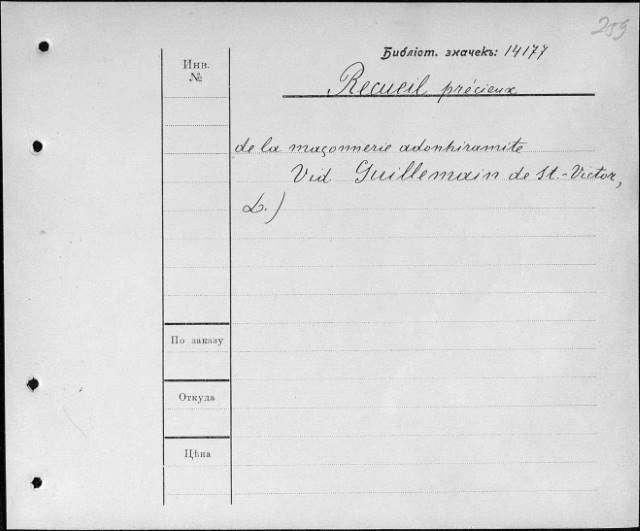 259
Библіот. значекъ: 14177
Инв.
№
Recueil précieux
de la maçonnerie adonhiramite
Vid Guillemain de St.-Victor,
L.)
По заказу
Откуда
Цѣна